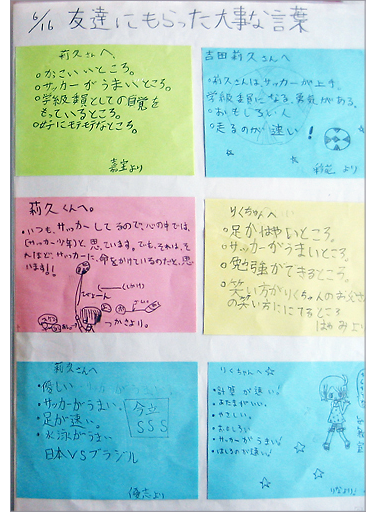 6/16 友達にもらった大事な言葉
莉久さんへ
・かっこいいところ。
・サッカーがうまいところ。
・学級委員としての自覚を
もっているところ。
・女子にモテモテなところ。
より
吉田莉久さんへ
・莉久さんは、サッカーが上手。
学級委員になる、勇気がある。
・おもしろい人
走るのが速い!
より
莉久くんへ。
・いつも、サッカーしてるので、心の中では、
(サッカー少年)と思っています。でも、それは、そ
れほど、サッカーに、命をかけているのだと、思
います!!
つかさより。
りくちゃんへ
・足がはやいところ。
・サッカーがうまいところ。
・勉強ができるところ。
・笑い方がりくちゃんのお父さん
の笑い方ににてるところ
より
莉久さんへ
・優しい
・サッカーがうまい。
・足が速い。
・水泳がうまい
日本VSブラジル
今立
SSS
優志より
りくちゃんへ☆
・計算が速い!
・あたまがいい。
・やさしい。
・おもしろい
・サッカーがうまい!
・はしるのが速い!
りなより♪